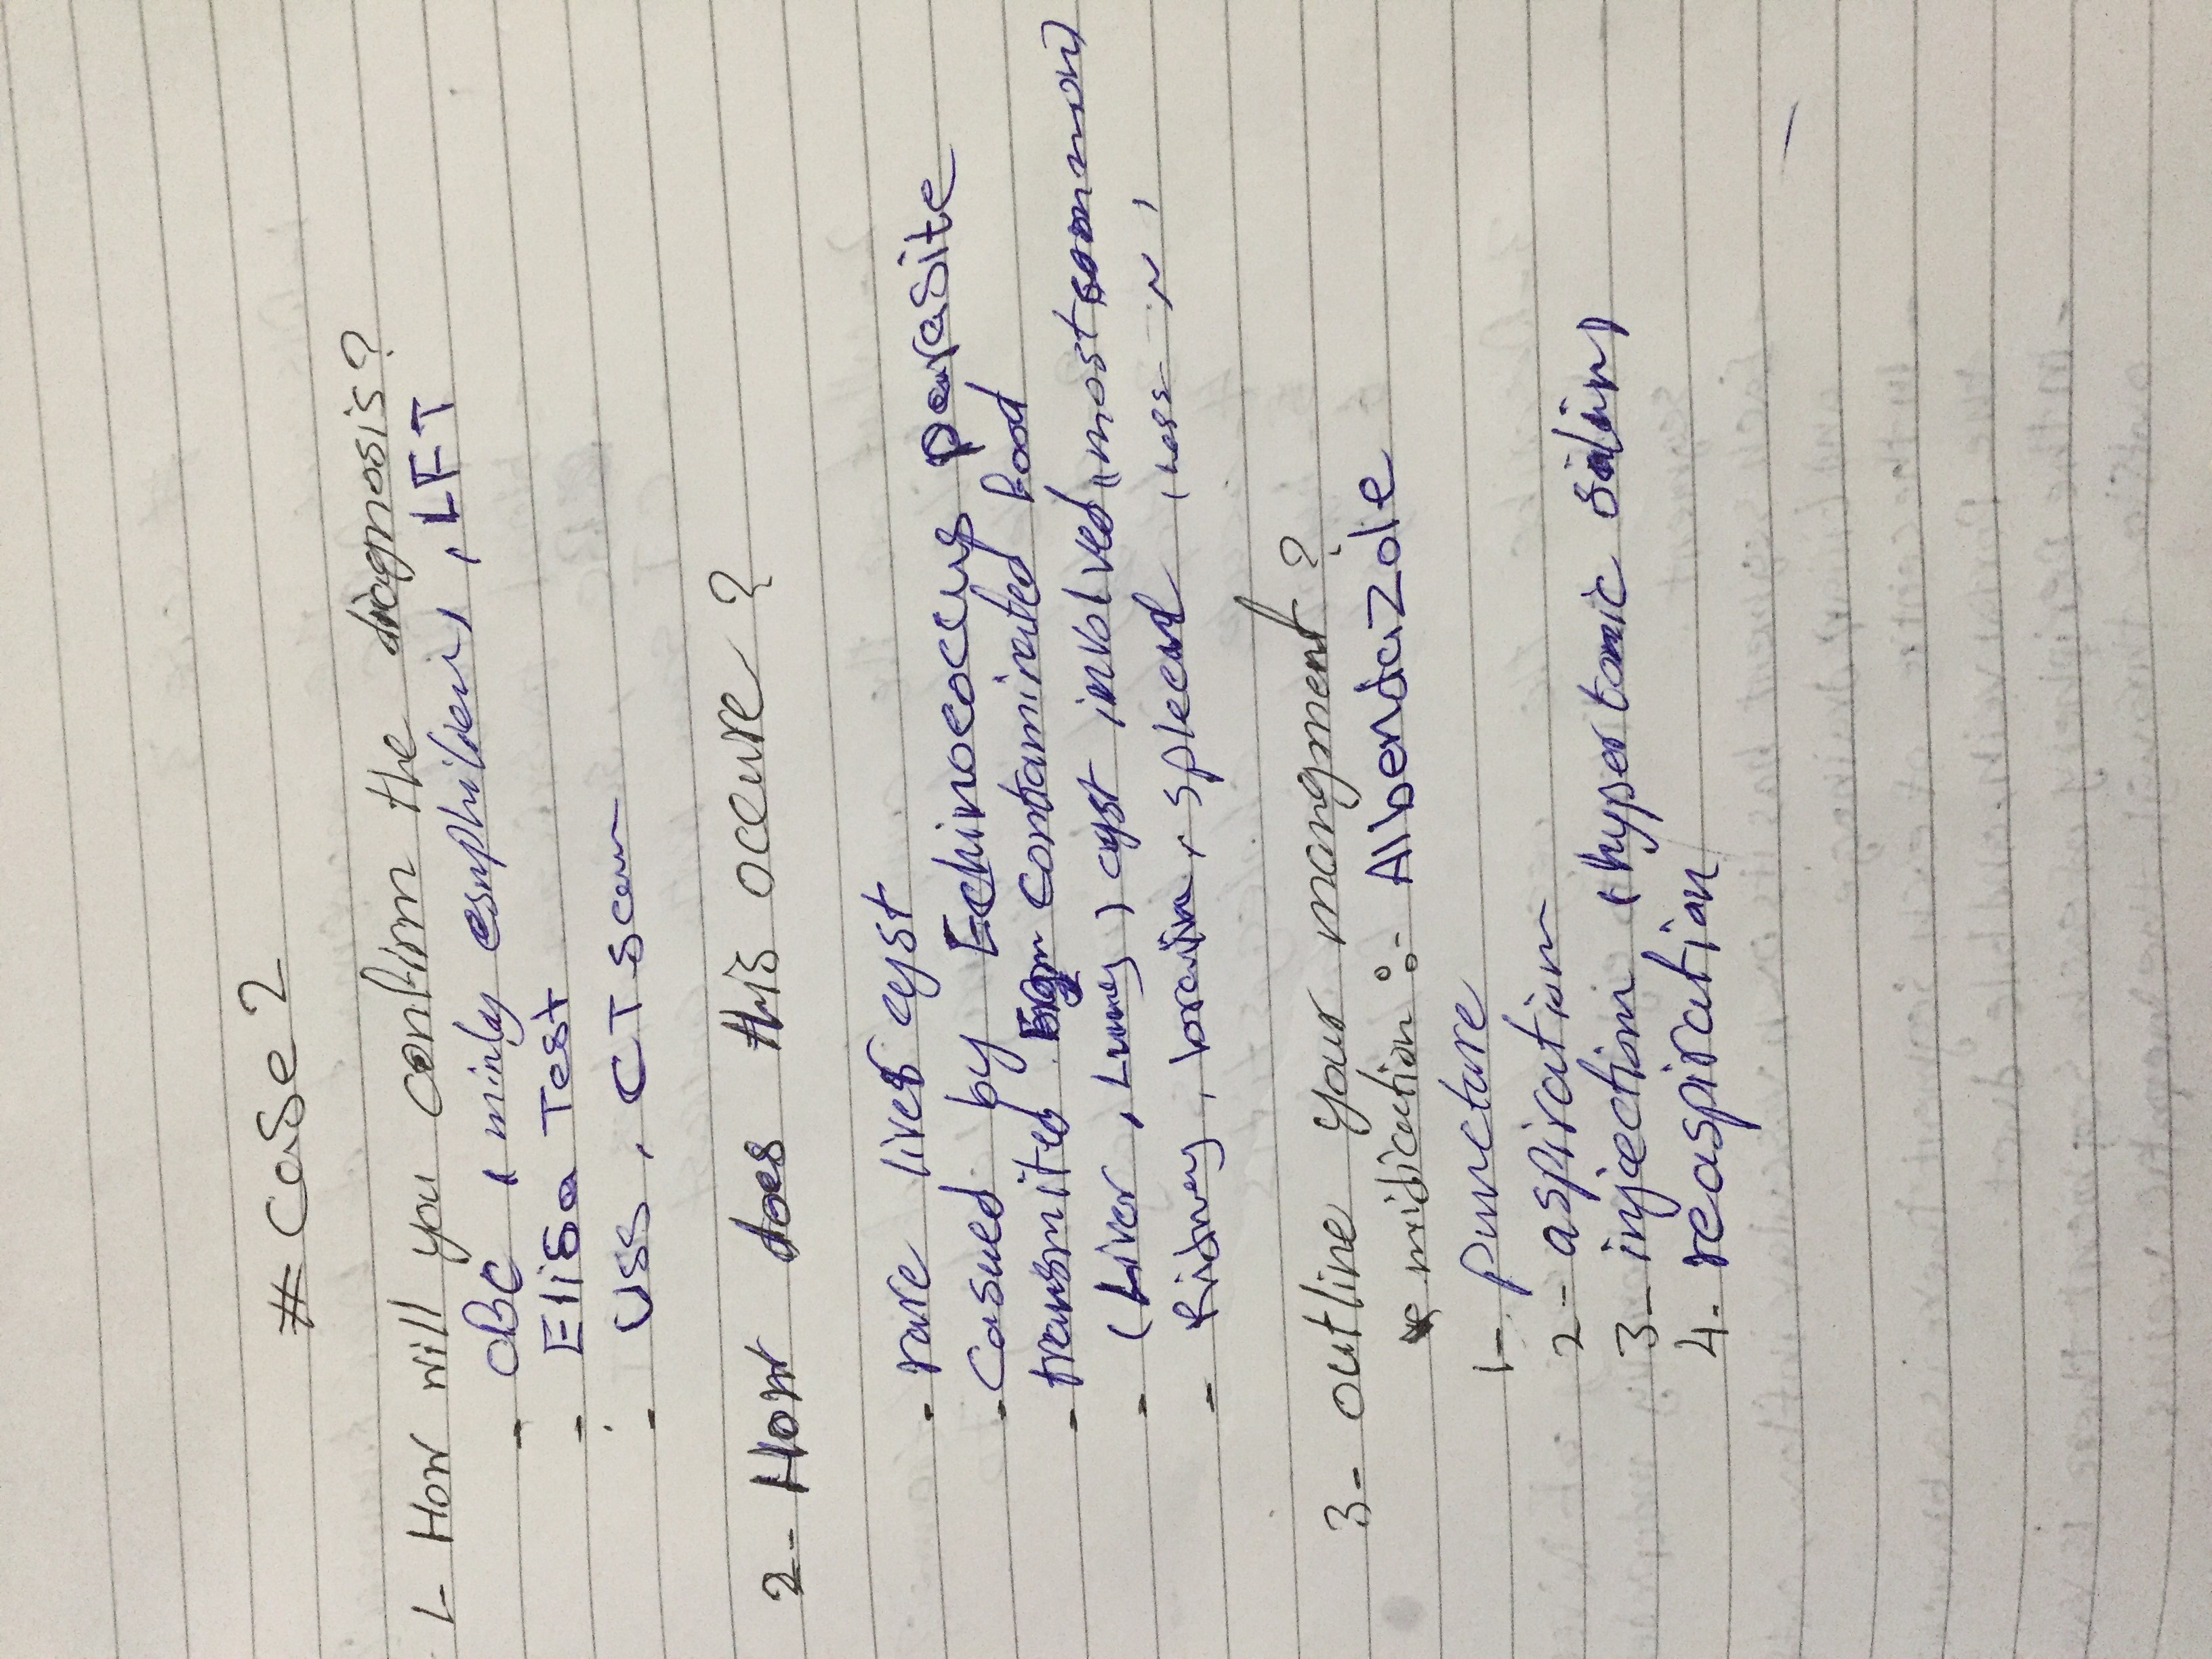 # Case 2
1- How will you confirm the diagnosis?
- CBC (minlay esnphilians) , LFT
- Elisa Test
- USS , CT scan
2- How does this occure ?
- rare liver cyst
- Casued by Echinococcus parasite
- transmited from contaminated food
- (Liver , Lung) cyst involved (most common)
- Kidney , brain , spleen (less
3- outline your mangment ?
* midication :- Albendazole
1- puncture
2- aspiration
3- injection (hypertonic salin)
4- reaspiration